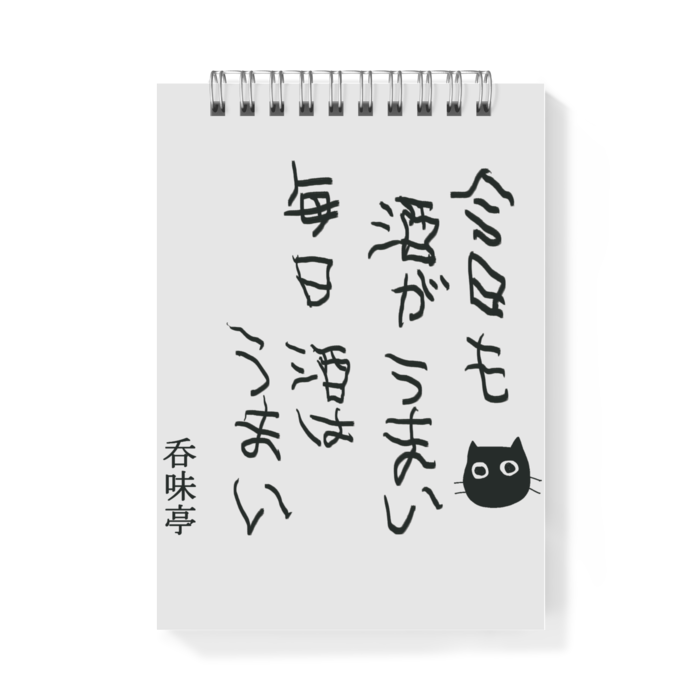 今日も
酒がうまい
毎日酒は
うまい
呑味亭